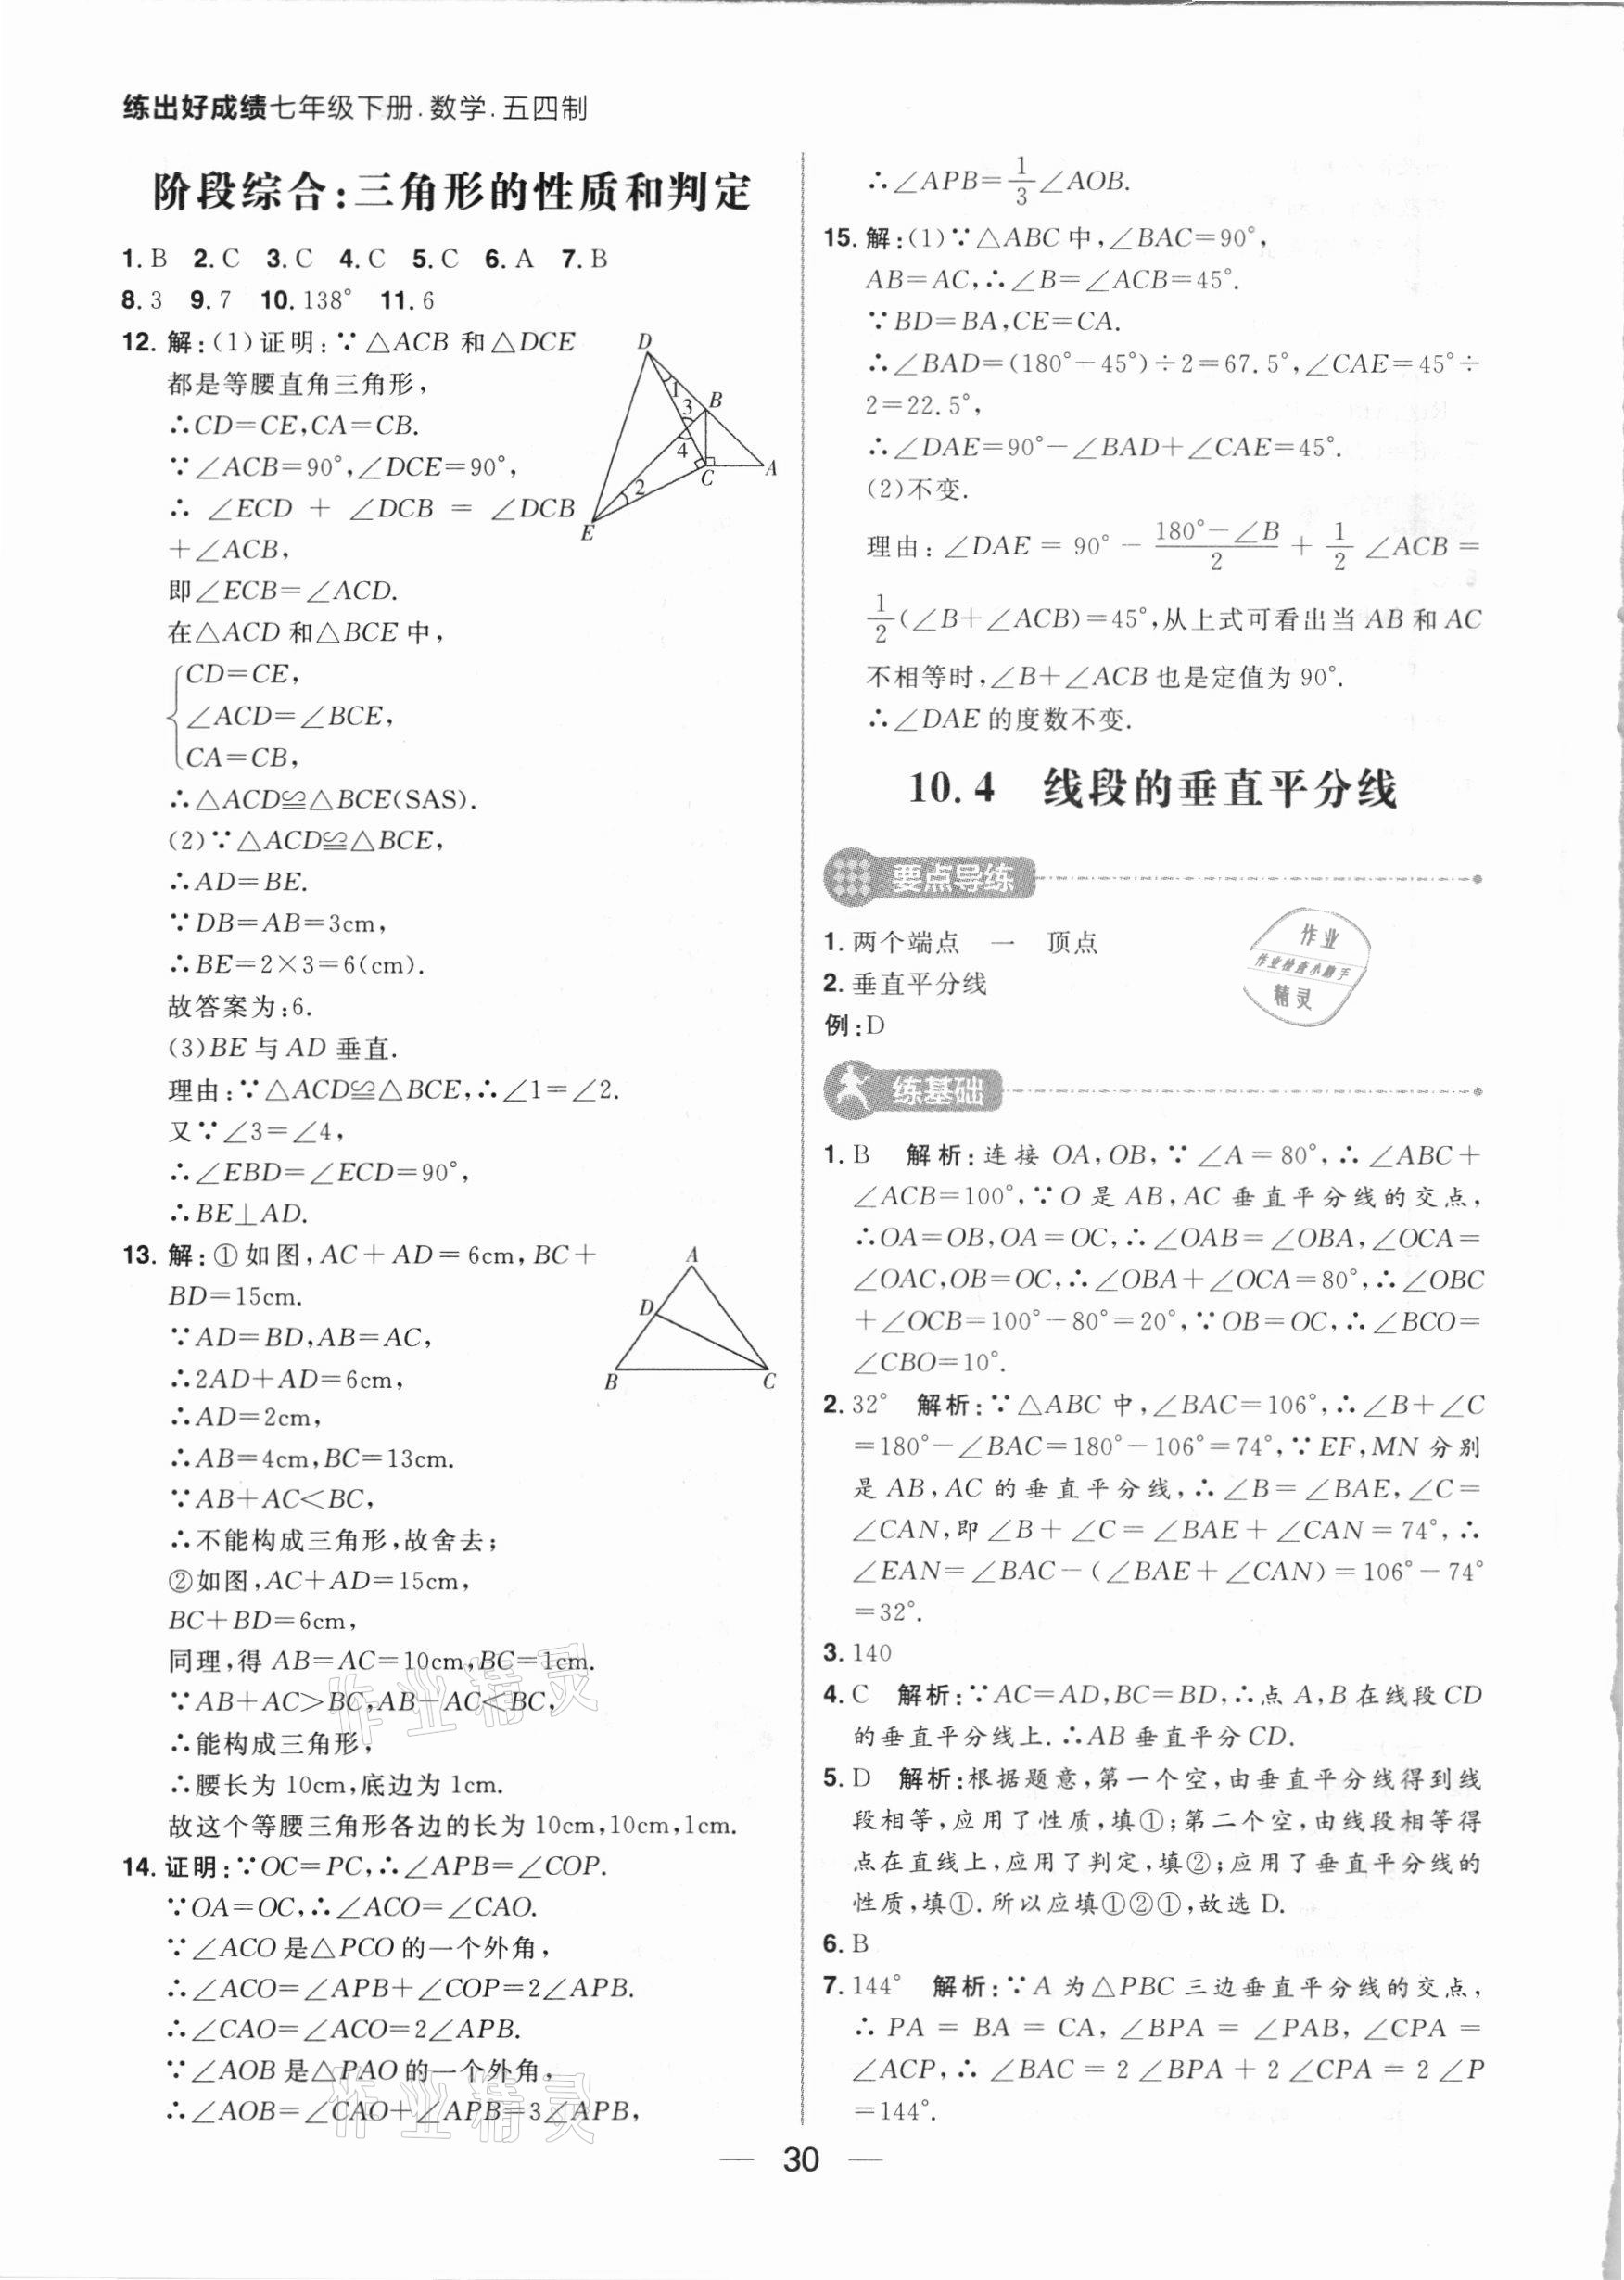 练出好成绩七年级下册.数学.五四制
阶段综合:三角形的性质和判定
1.B 2.C 3.C 4.C 5.C 6.A 7.B
8.3 9.7 10.138° 11.6
12.解:(1)证明:∵△ACB和△DCE
都是等腰直角三角形,
∴CD=CE,CA=CB.
∵∠ACB=90°,∠DCE=90°,
∴∠ECD+∠DCB=∠DCB
+∠ACB,
即∠ECB=∠ACD.
在△ACD和△BCE中,
CD=CE,
∠ACD=∠BCE,
CA=CB,
∴△ACD≌△BCE(SAS).
(2)∵△ACD≌△BCE,
∴AD=BE.
∵DB=AB=3cm,
∴BE=2×3=6(cm).
故答案为:6.
(3)BE与AD垂直.
理由:∵△ACD≌△BCE,∴∠1=∠2.
又∵∠3=∠4,
∴∠EBD=∠ECD=90°,
∴BE⊥AD.
D
1
3
B
4
C
A
2
E
13.解:①如图,AC+AD=6cm,BC+
BD=15cm.
∵AD=BD,AB=AC,
∴2AD+AD=6cm,
∴AD=2cm,
∴AB=4cm,BC=13cm.
∵AB+AC<BC,
∴不能构成三角形,故舍去;
②如图,AC+AD=15cm,
BC+BD=6cm,
同理,得AB=AC=10cm,BC=1cm.
∵AB+AC>BC,AB-AC<BC,
∴能构成三角形,
∴腰长为10cm,底边为1cm.
故这个等腰三角形各边的长为10cm,10cm,1cm.
A
D
B
C
14.证明:∵OC=PC,∴∠APB=∠COP.
∵OA=OC,∴∠ACO=∠CAO.
∵∠ACO是△PCO的一个外角,
∴∠ACO=∠APB+∠COP=2∠APB.
∴∠CAO=∠ACO=2∠APB.
∵∠AOB是△PAO的一个外角,
∴∠AOB=∠CAO+∠APB=3∠APB,
作业精灵
作业精灵
∴∠APB=1/3∠AOB.
15.解:(1)∵△ABC中,∠BAC=90°,
AB=AC,∴∠B=∠ACB=45°.
∵BD=BA,CE=CA.
∴∠BAD=(180°-45°)÷2=67.5°,∠CAE=45°÷
2=22.5°,
∴∠DAE=90°-∠BAD+∠CAE=45°.
(2)不变.
理由:∠DAE=90°-(180°-∠B)/2+1/2∠ACB=
1/2(∠B+∠ACB)=45°,从上式可看出当AB和AC
不相等时,∠B+∠ACB也是定值为90°.
∴∠DAE的度数不变.
10.4 线段的垂直平分线
要点导练
1.两个端点 一 顶点
2.垂直平分线
例:D
作业
作业检查小助手
精灵
练基础
1.B 解析:连接OA,OB,∵∠A=80°,∴∠ABC+
∠ACB=100°,∵O是AB,AC垂直平分线的交点,
∴OA=OB,OA=OC,∴∠OAB=∠OBA,∠OCA=
∠OAC,OB=OC,∴∠OBA+∠OCA=80°,∴∠OBC
+∠OCB=100°-80°=20°,∵OB=OC,∴∠BCO=
∠CBO=10°.
2.32° 解析:∵△ABC中,∠BAC=106°,∴∠B+∠C
=180°-∠BAC=180°-106°=74°,∵EF,MN分别
是AB,AC的垂直平分线,∴∠B=∠BAE,∠C=
∠CAN,即∠B+∠C=∠BAE+∠CAN=74°,∴
∠EAN=∠BAC-(∠BAE+∠CAN)=106°-74°
=32°.
3.140
4.C 解析:∵AC=AD,BC=BD,∴点A,B在线段CD
的垂直平分线上.∴AB垂直平分CD.
5.D 解析:根据题意,第一个空,由垂直平分线得到线
段相等,应用了性质,填①;第二个空,由线段相等得
点在直线上,应用了判定,填②;应用了垂直平分线的
性质,填①.所以应填①②①,故选D.
6.B
7.144° 解析:∵A为△PBC三边垂直平分线的交点,
∴PA=BA=CA,∠BPA=∠PAB,∠CPA=
∠ACP,∴∠BAC=2∠BPA+2∠CPA=2∠P
=144°.
— 30 —